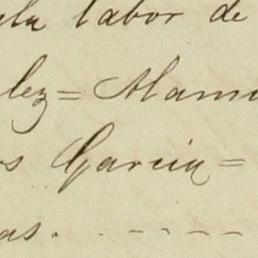 la labor de
lez= Alam
s Garcia=
as. - - - - -